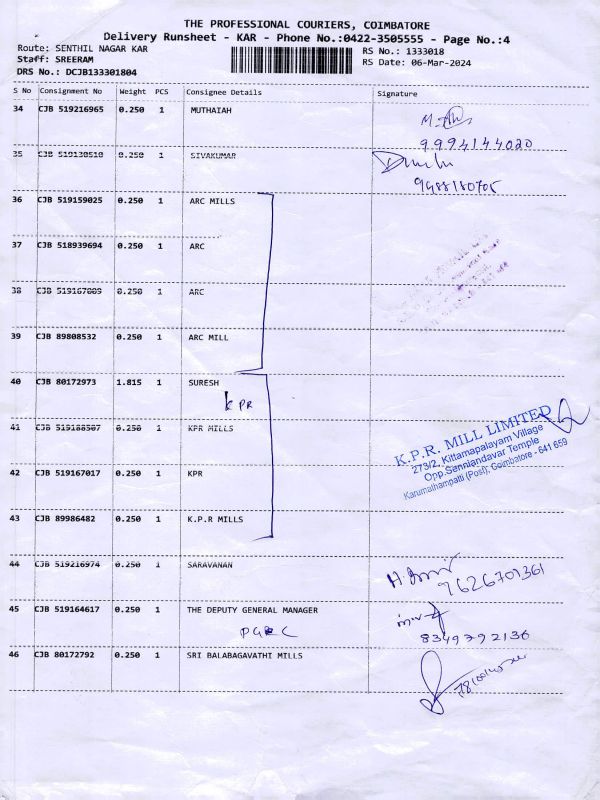 THE PROFESSIONAL COURIERS, COIMBATORE
Delivery Runsheet - KAR - Phone No.:0422-3505555 - Page No.:4
Route: SENTHIL NAGAR KAR
RS No.: 1333018
Staff: SREERAM
RS Date: 06-Mar-2024
DRS No.: DCJB133301804
S No Consignment No Weight PCS Consignee Details Signature
34 CJB 519216965 0.250 1 MUTHAIAH
9994144020
35 CJB 519130510 0.250 1 SIVAKUMAR
9488180705
36 CJB 519159025 0.250 1 ARC MILLS
37 CJB 518939694 0.250 1 ARC
38 CJB 519167009 0.250 1 ARC
39 CJB 89808532 0.250 1 ARC MILL
40 CJB 80172973 1.815 1 SURESH
KPR
41 CJB 519188507 0.250 1 KPR MILLS
K.P.R. MILL LIMITED
273/2, Kittampalayam Village
Opp.Senniandavar Temple
Karumathampatti (Post), Coimbatore - 641 659
42 CJB 519167017 0.250 1 KPR
43 CJB 89986482 0.250 1 K.P.R MILLS
44 CJB 519216974 0.250 1 SARAVANAN
9626701361
45 CJB 519164617 0.250 1 THE DEPUTY GENERAL MANAGER
8349792136
46 CJB 80172792 0.250 1 SRI BALABAGAVATHI MILLS